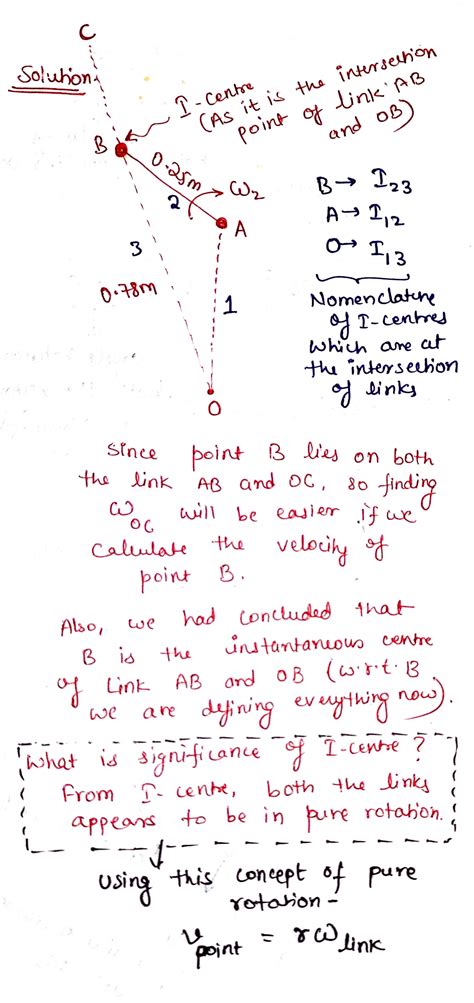 C
Solution
I-centre
(As it is the intersection
point of link AB
and OB)
B
0.25m
2
ω2
A
3
0.78m
1
O
B → I23
A → I12
O → I13
Nomenclature
of I-centres
which are at
the intersection
of links
Since point B lies on both
the link AB and OC, so finding
ωOC will be easier if we
calculate the velocity of
point B.
Also, we had concluded that
B is the instantaneous centre
of Link AB and OB (w.r.t. B
we are defining everything now).
What is significance of I-centre?
From I-centre, both the links
appears to be in pure rotation.
Using this concept of pure
rotation-
vpoint = rωlink